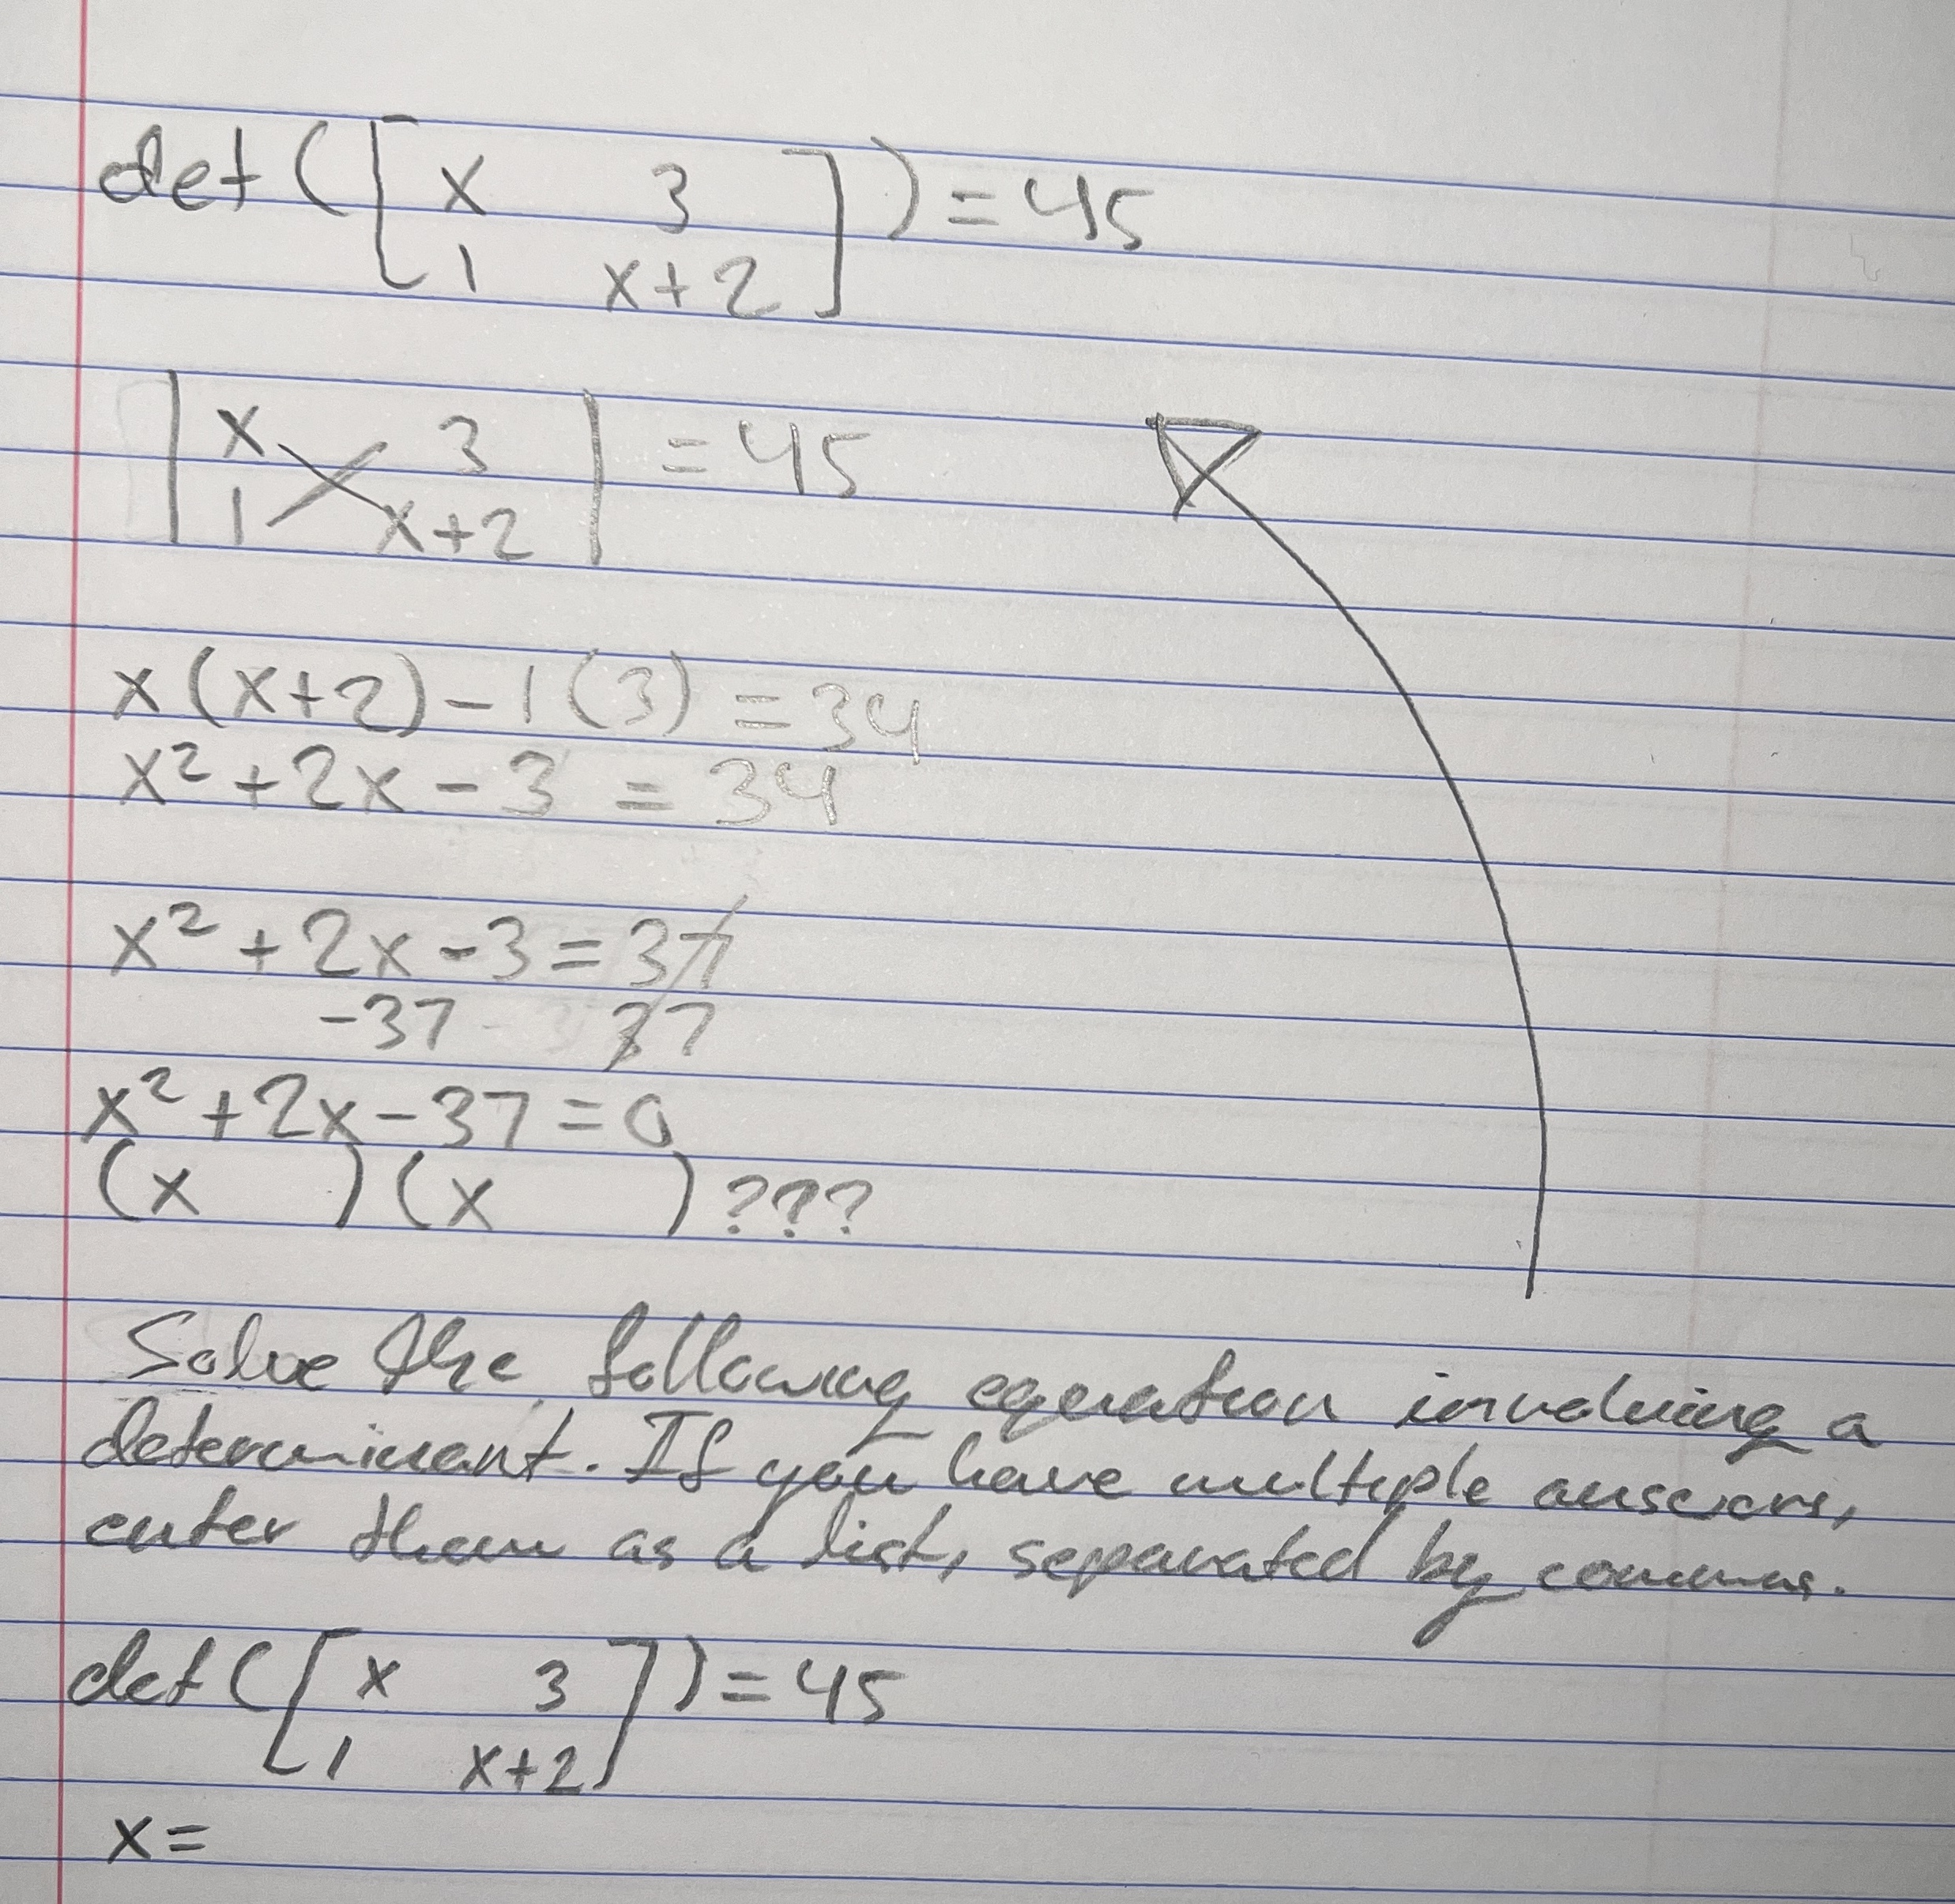 det([x 3
1 x+2]) = 45
|x 3
1 x+2| = 45
x(x+2)-1(3) = 34
x²+2x-3 = 34
x²+2x-3=37
-37 - 37
x²+2x-37=0
(x )(x )???
Solve the following equation involving a
determinant. If you have multiple answers,
enter them as a list, separated by commas.
det([x 3
1 x+2])=45
x=